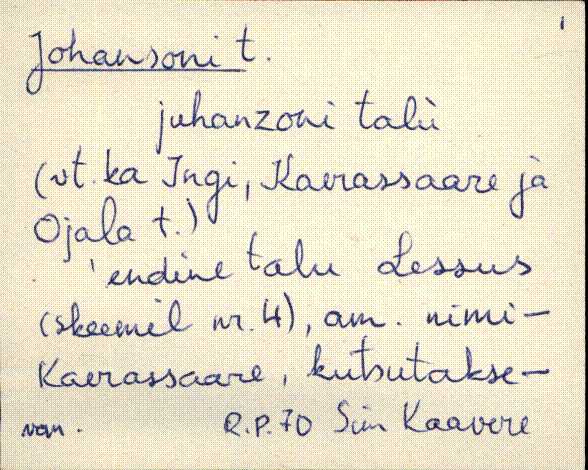 Johansoni t.
juhanzoni talù
(vt. ka Ingi, Kaerassaare jà
Ojala t.)
'endine talu Lessus
(skeemil nr. 4), am. nimi-
Kaerassaare, kutsutakse-
R.P. 70 Siin Kaavere